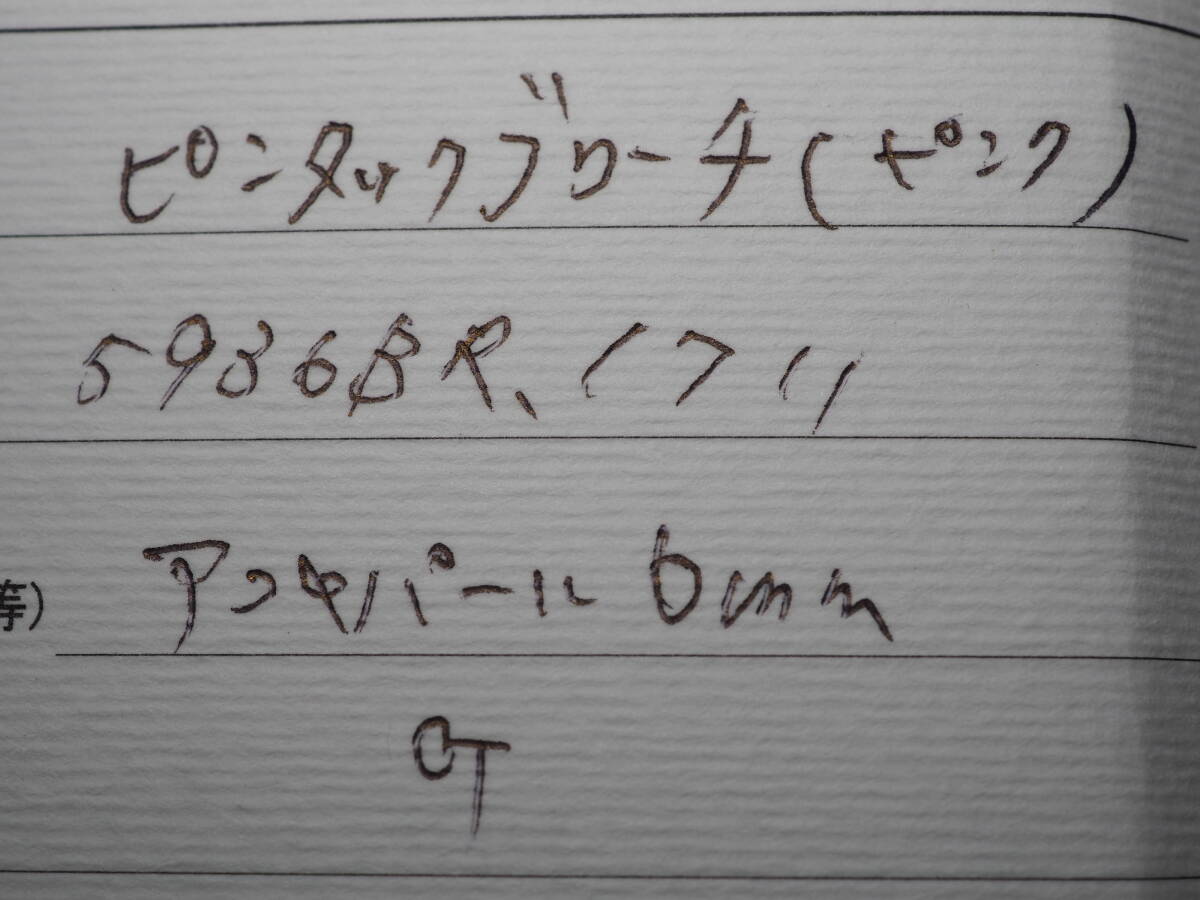 ピンタックブローチ(ピンク)
5936BR、1711
等) アコヤパール 6mm
CT